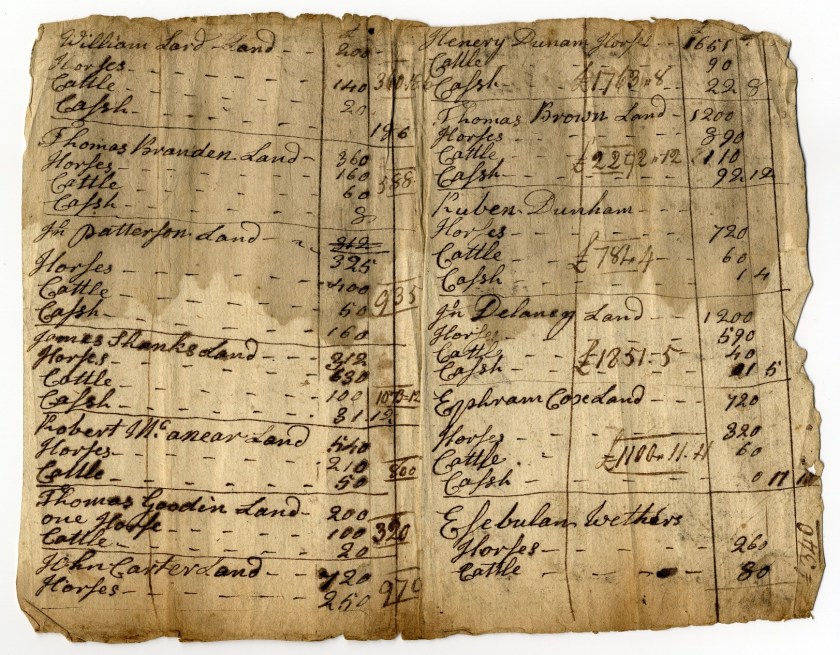 William Lard Land - 200
Horses - - - - 140
Cattle - - - - 20
Cassh - - - - 18 6
Thomas Branden Land - 360
Horses - - - - 160
Cattle - - - - 60 588
Cassh - - - - 8
Jn Patterson Land - - 312
325
Horses - - - - 400
Cattle - - - - 50 935
Cassh - - - - 160
James Shanks Land - 312
Horses - - - - 630
Cattle - - - - 100 1073=12
Cassh - - - - 31 12
Robert McAnear Land 540
Horses - - - - 210
Cattle - - - - 50 800
Thomas Goodin Land - 200
one Horse - - - 100 320
Cattle - - - - 20
John Carter Land - - 720
Horses - - - - 250 970
Henery Dunam Horses - 1651
Cattle - - - - 90
Cassh - - £1763=8 - 22 8
Thomas Brown Land - 1200
Horses - - - - 890
Cattle - - £2292=12 110
Cassh - - - - 92 12
Ruben Dunham - - -
Horses - - - - 720
Cattle - - £784=4 - 60
Cassh - - - - 1 4
Jn Delaney Land - 1200
Horses - - - - 590
Cattle - - £1851=5 - 40
Cassh - - - - 21 5
Ephram Coxe Land - - 720
Horses - - - - 320
Cattle - - £1100=11=4 - 60
Cassh - - - - 0 11
Esebulan Wethers
Horses - - - - 260
Cattle - - - - 80
£340